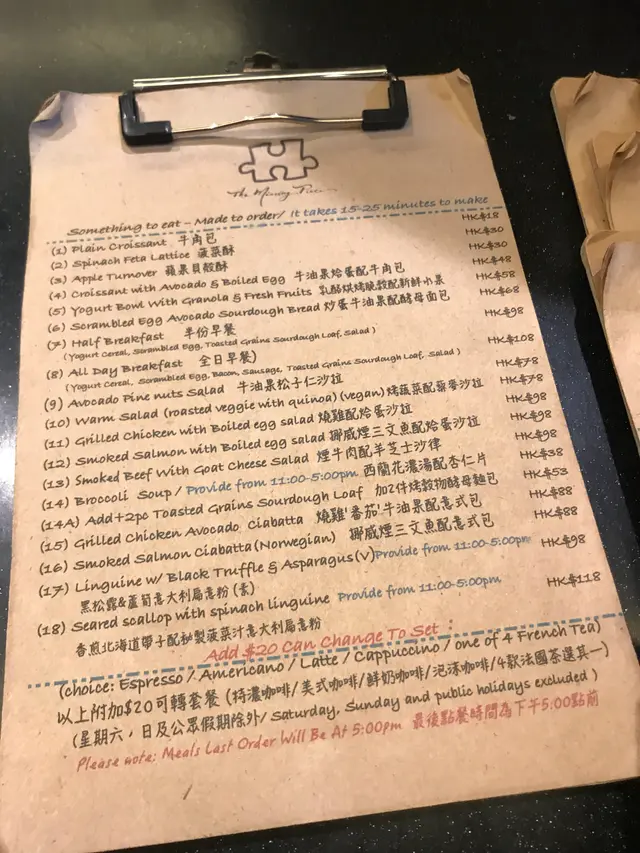 The Missing Piece
Something to eat - Made to order/ It takes 15-25 minutes to make
(1) Plain Croissant 牛角包 HK$18
(2) Spinach Feta Lattice 菠菜酥 HK$30
(3) Apple Turnover 蘋果貝殼酥 HK$30
(4) Croissant with Avocado & Boiled Egg 牛油果烚蛋配牛角包 HK$48
(5) Yogurt Bowl With Granola & Fresh Fruits 乳酪烘烤脆穀配新鮮水果 HK$58
(6) Scrambled Egg Avocado Sourdough Bread 炒蛋牛油果配酵母面包 HK$68
(7) Half Breakfast 半份早餐 HK$98
(Yogurt Cereal, Scrambled Egg, Toasted Grains Sourdough Loaf, Salad)
(8) All Day Breakfast 全日早餐) HK$108
(Yogurt Cereal, Scrambled Egg, Bacon, Sausage, Toasted Grains Sourdough Loaf, Salad)
(9) Avocado Pine nuts Salad 牛油果松子仁沙拉 HK$78
(10) Warm Salad (roasted veggie with quinoa) (vegan) 烤蔬菜配藜麥沙拉 HK$78
(11) Grilled Chicken with Boiled egg salad 燒雞配烚蛋沙拉 HK$98
(12) Smoked Salmon with Boiled egg salad 挪威煙三文魚配烚蛋沙拉 HK$98
(13) Smoked Beef With Goat Cheese Salad 煙牛肉配羊芝士沙律 HK$98
(14) Broccoli Soup / Provide from 11:00-5:00pm 西蘭花濃湯配杏仁片 HK$38
(14A) Add+2pc Toasted Grains Sourdough Loaf 加2件烤穀物酵母麵包 HK$53
(15) Grilled Chicken Avocado Ciabatta 燒雞'番茄'牛油果配意式包 HK$88
(16) Smoked Salmon Ciabatta (Norwegian) 挪威煙三文魚配意式包 HK$88
(17) Linguine w/ Black Truffle & Asparagus (V) Provide from 11:00-5:00pm HK$98
黑松露&蘆筍意大利扁意粉 (素)
(18) Seared scallop with spinach linguine Provide from 11:00-5:00pm HK$118
香煎北海道帶子配秘製菠菜汁意大利扁意粉
Add $20 Can Change To Set :
(choice: Espresso / Americano / Latte / Cappuccino / one of 4 French Tea)
以上附加$20可轉套餐 (特濃咖啡/美式咖啡/鮮奶咖啡/泡沫咖啡/4款法國茶選其一)
(星期六, 日及公眾假期除外/ Saturday, Sunday and public holidays excluded )
Please note: Meals Last Order Will Be At 5:00pm 最後點餐時間為下午5:00點前